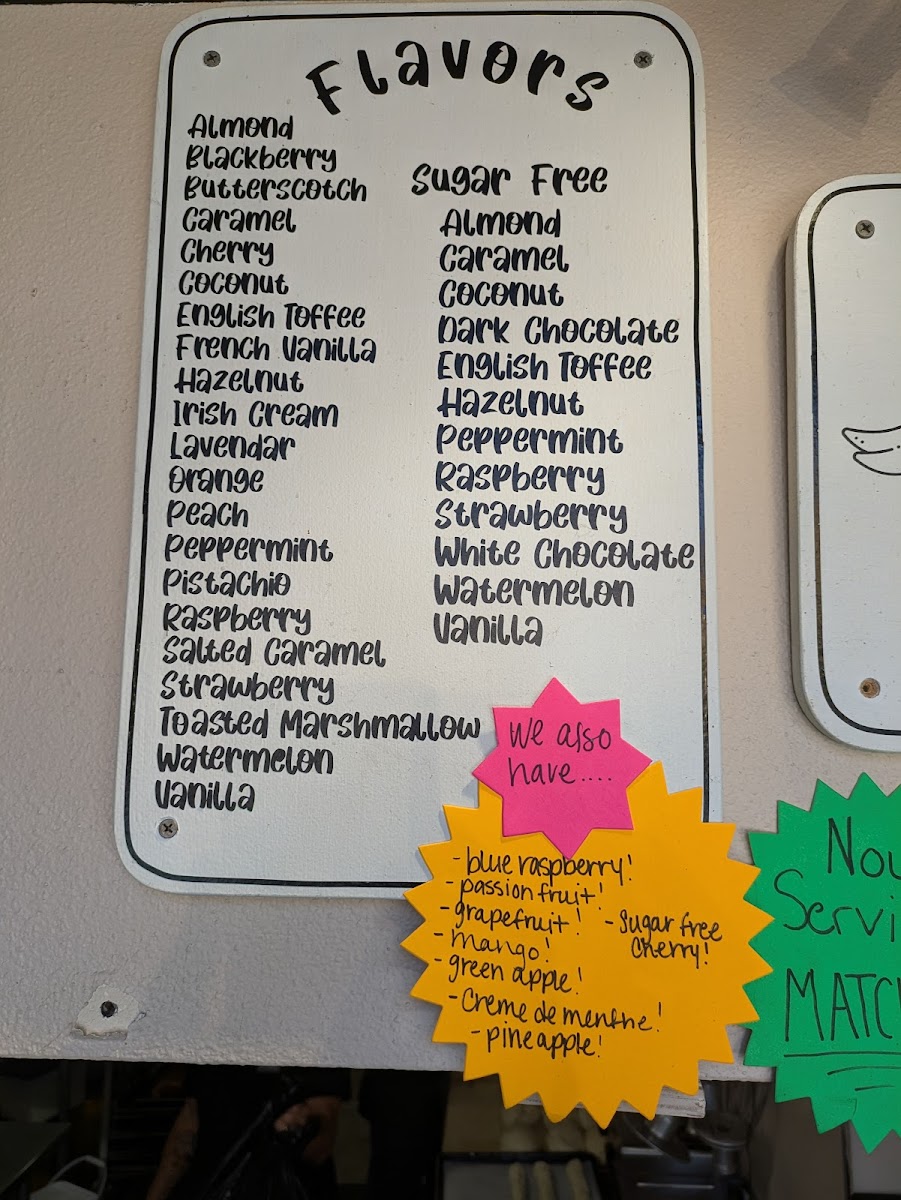 Flavors
Almond
Blackberry
Butterscotch
Caramel
Cherry
Coconut
English Toffee
French Vanilla
Hazelnut
Irish Cream
Lavendar
Orange
Peach
Peppermint
Pistachio
Raspberry
Salted Caramel
Strawberry
Toasted Marshmallow
Watermelon
Vanilla
Sugar Free
Almond
Caramel
Coconut
Dark Chocolate
English Toffee
Hazelnut
Peppermint
Raspberry
Strawberry
White Chocolate
Watermelon
Vanilla
We also
have....
- blue raspberry!
- passion fruit!
- grapefruit!
- mango!
- green apple!
- Creme de menthe!
- pineapple!
- Sugar free
Cherry!